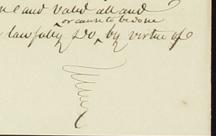 and valid all and
or cause to be done
lawfully do by virtue of